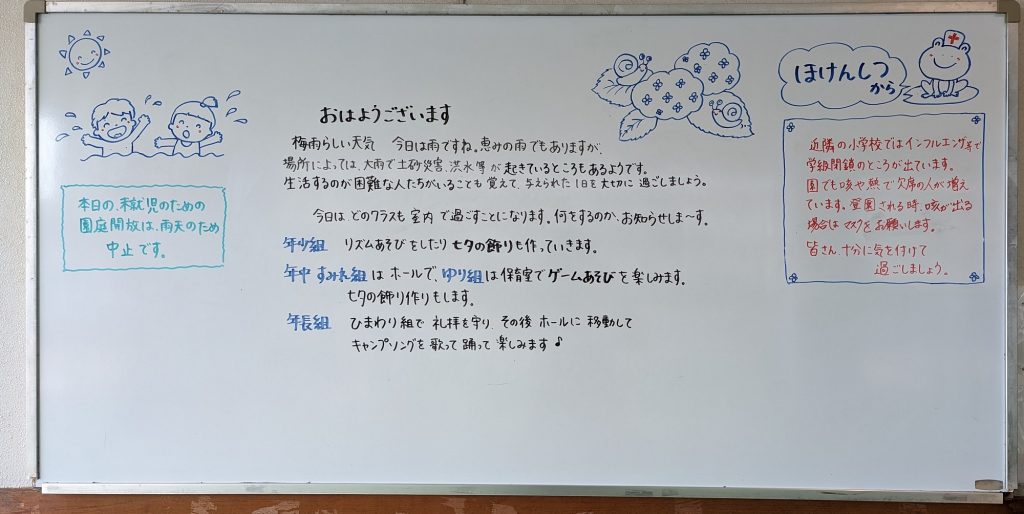 おはようございます
梅雨らしい天気　今日は雨ですね。恵みの雨でもありますが、
場所によっては、大雨で土砂災害、洪水等が起きているところもあるようです。
生活するのが困難な人たちがいることも覚えて、与えられた1日を大切に過ごしましょう。
今日はどのクラスも室内で過ごすことになります。何をするのか、お知らせしま〜す。
年少組　リズムあそびをしたり七夕の飾りも作っていきます。
年中 すみれ組はホールで、ゆり組は保育室でゲームあそびを楽しみます。
七夕の飾り作りもします。
年長組　ひまわり組で礼拝を守り、その後ホールに移動して
キャンプソングを歌って踊って楽しみます♪
本日の、未就児のための
園庭開放は、雨天のため
中止です。
ほけんしつ
から
近隣の小学校ではインフルエンザ等で
学級閉鎖のところが出ています。
園でも咳や熱で欠席の人が増え
ています。登園される時、咳が出る
場合はマスクをお願いします。
皆さん十分に気を付けて
過ごしましょう。